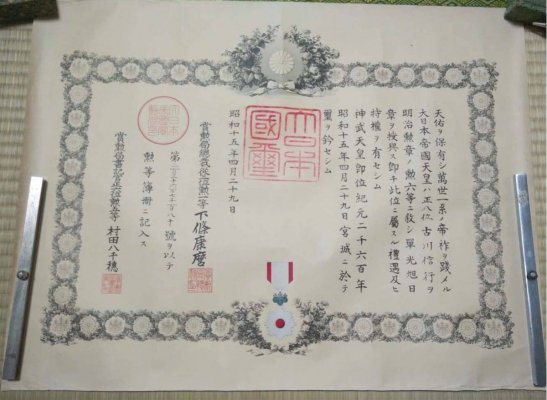 天佑ヲ保有シ萬世一系ノ帝祚ヲ踐メル
大日本帝國天皇ハ正八位古川信行ヲ
明治勲章ノ勲六等ニ敍シ單光旭日
章ヲ授與ス即チ此位ニ屬スル禮遇及ヒ
特權ヲ有セシム
神武天皇即位紀元二千六百年
昭和十五年四月二十九日宮城ニ於テ
璽ヲ鈐セシム
大日本國璽
昭和十五年四月二十九日
賞勲局總裁 下條康麿
第 號ヲ以テ
勲等簿册ニ記入ス
賞勲局書記官 村田八千穂